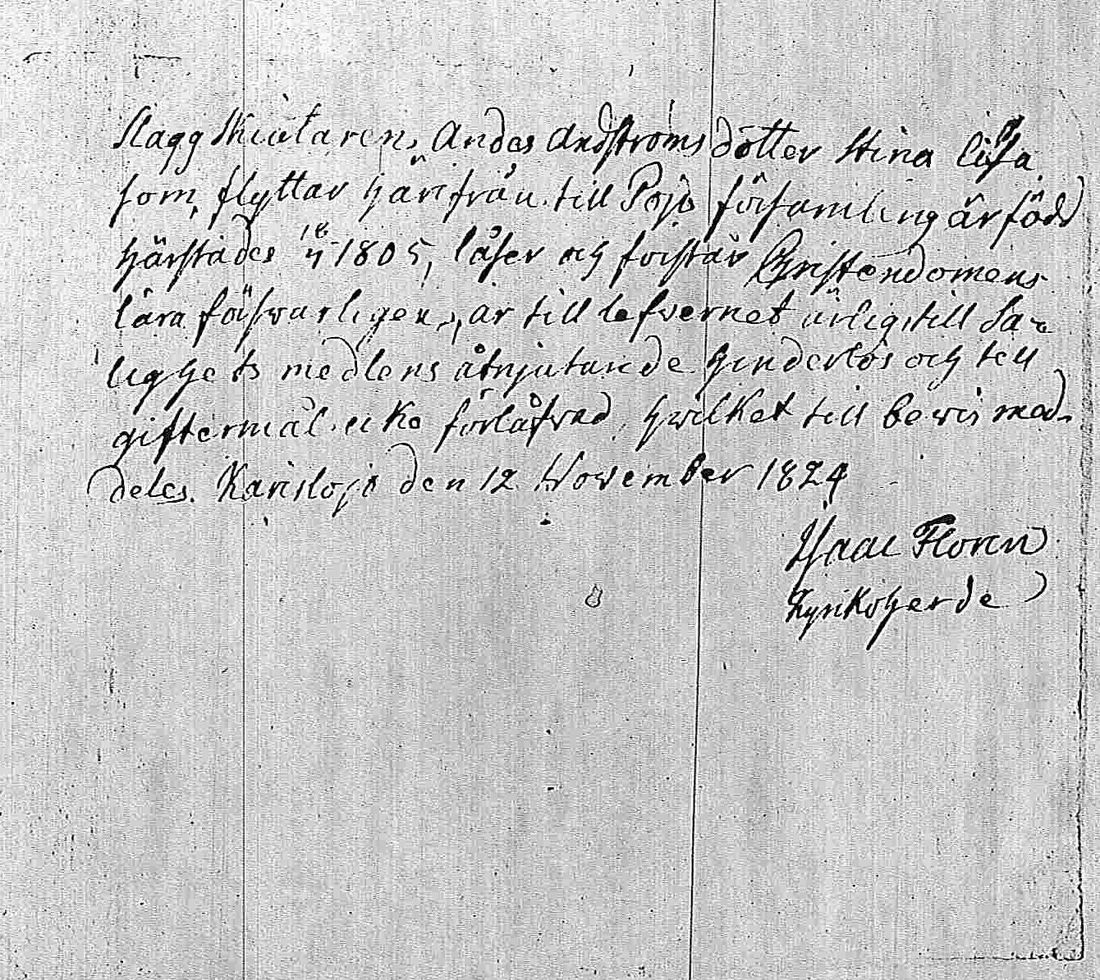 Slagg Skiutaren, Anders Andströms dotter Stina Lisa
som, flyttar härifrån till Pojo församling är född
härstädes 18/4 1805, läser och förstår Christendomens
lära försvarligen, är till lefvernet ärlig, till Sa-
lighets medlens åtnjutande hinderlös och till
giftermål icke förlåfvad, hvilket till bevis med-
deles. Karislojo den 12 November 1824
Isaac Floren
Kyrikoherde